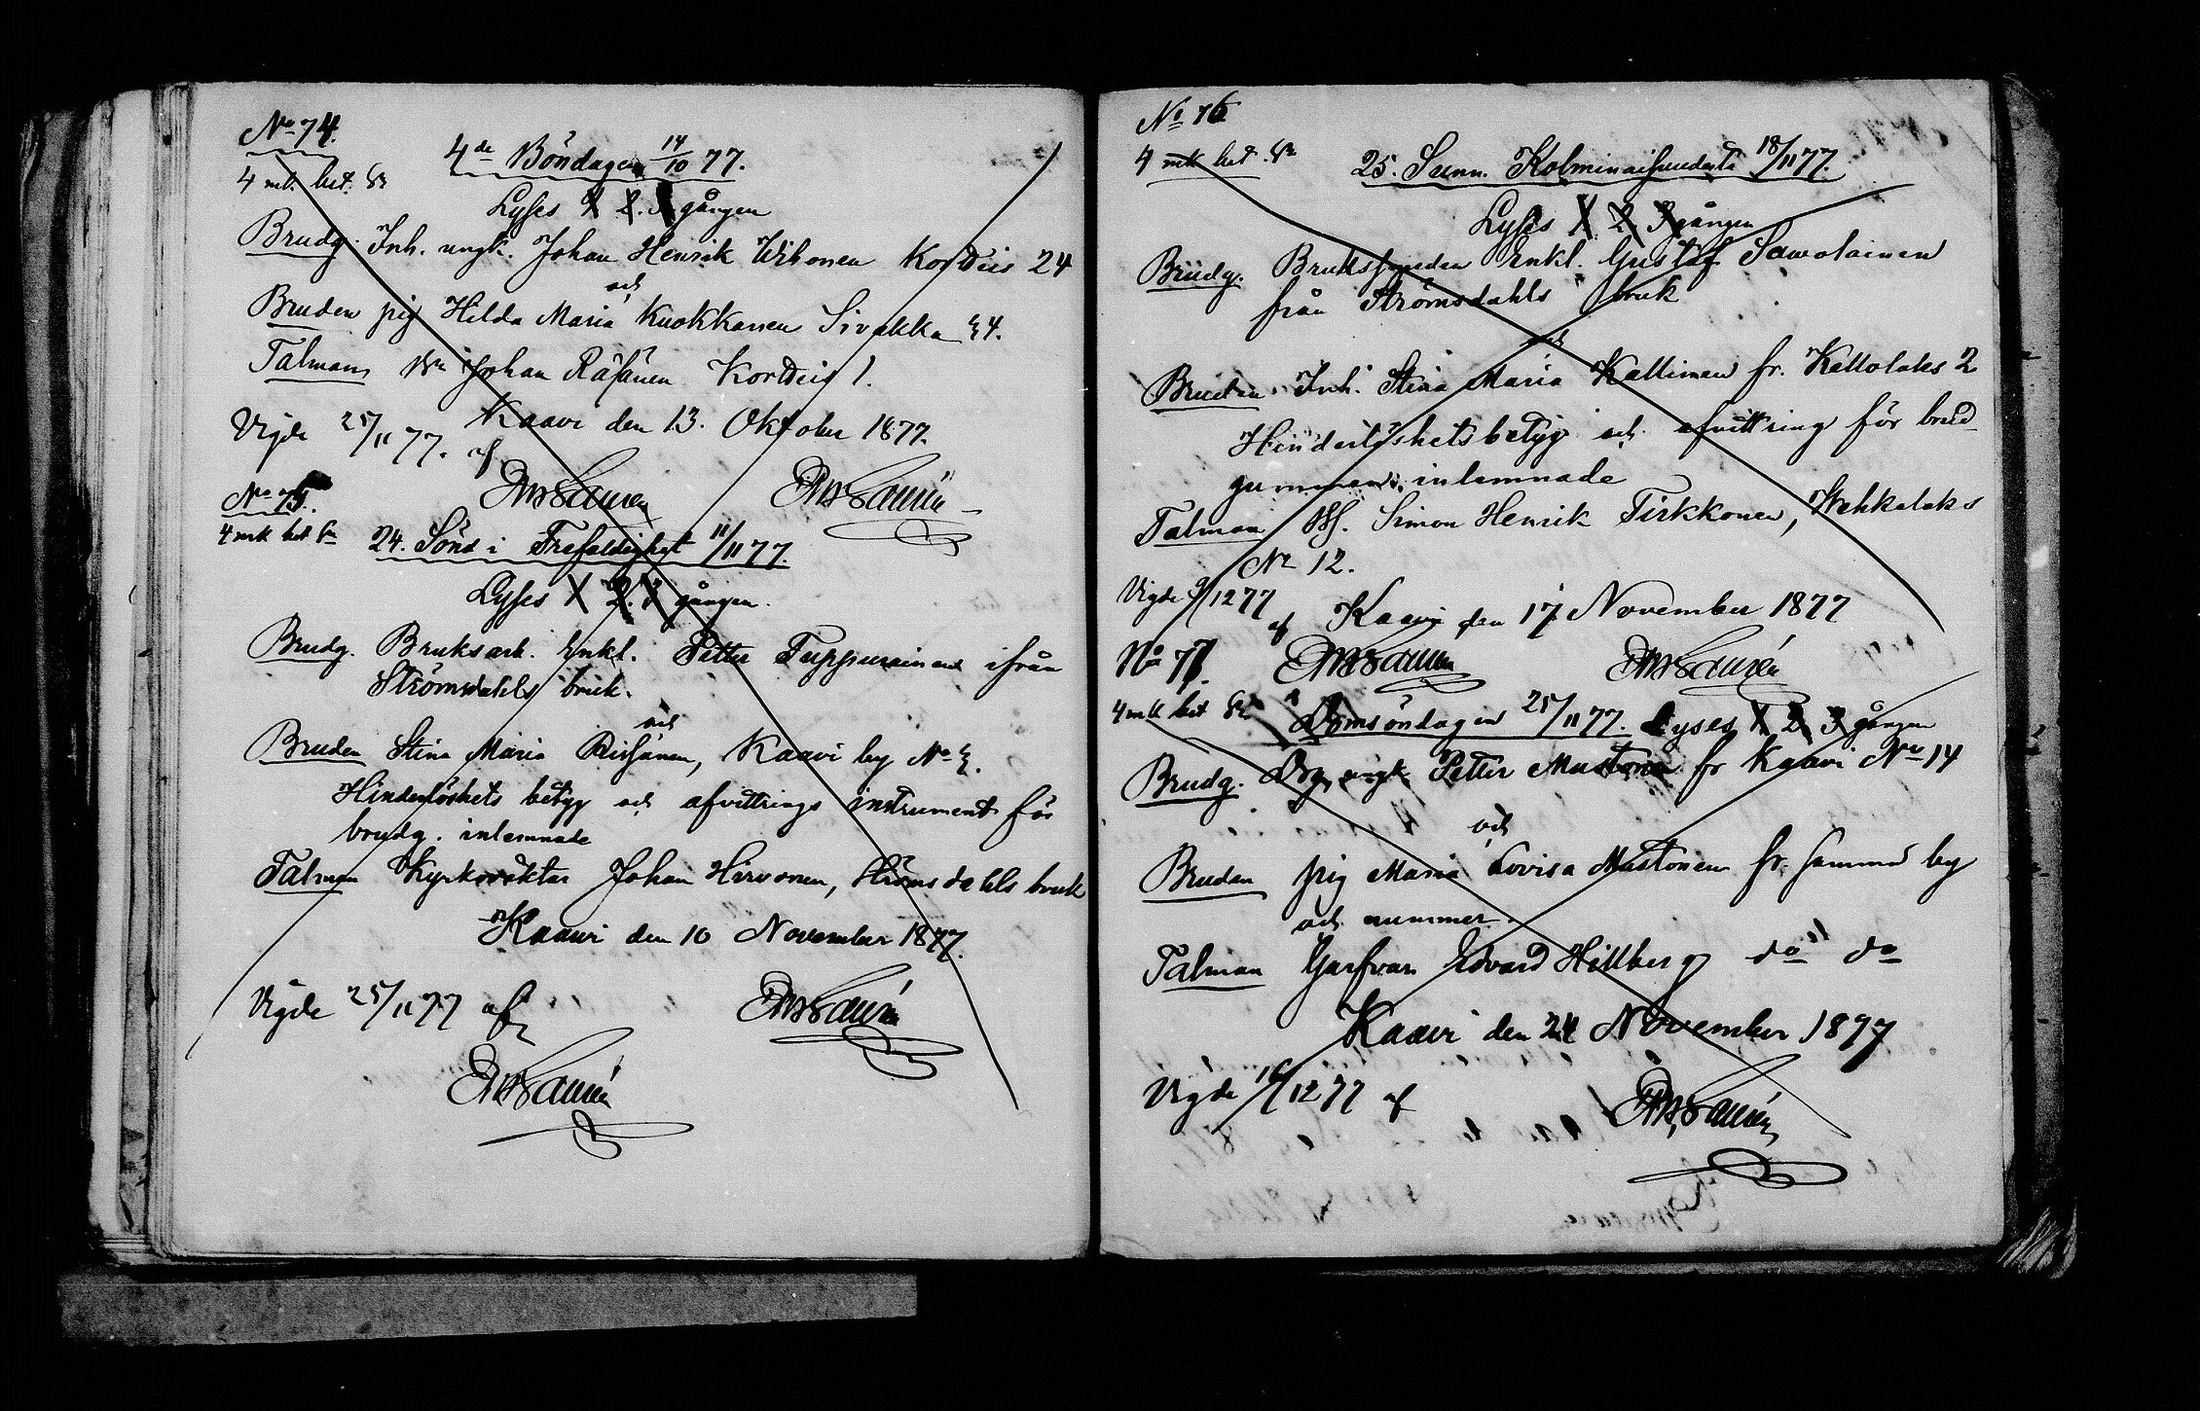 No 74.
4 mk. bet.
4de Böndagen 14/10 77.
Lyses 1 2. 3 gången
Brudg. Inh. ungk. Johan Henrik Wihonen Kordeis 24
och
Bruden pig Hilda Maria Kuokkanen Sivakka 4.
Talman Johan Räsänen Kordeis 1.
Kaavi den 13. Oktober 1877.
Vigde 25/11 77. af
No 75.
4 mk bet
24. Sönd i Trefaldighet 11/11 77.
Lyses 1 2. 3 gången.
Brudg. Bruksarb. Enkl. Petter Tuppurainen ifrån
Strömsdahls bruk.
och
Bruden Stina Maria Kaavi by No
Hinderlöshets betyg och afvittrings instrument för
brudg. inlemnade
Talman Kyrkoväktar Johan Hirvonen, Ströms dahls bruk
Kaavi den 10 November 1877.
Vigde 25/11 77 af
No 76
4 mk bet.
25. Sunn. Kolminaisuudesta 18/11 77.
Lyses 1 2 3 gången
Brudg. Enkl. Gustaf Sawolainen
från Strömsdahls bruk
och
Bruden Inh. Stina Maria Kallinen fr. Kattolaks 2
Hinderlöshetsbetyg och afvittring för brud-
gummen inlemnade
Talman Simon Henrik Tirkkonen, Wehkalaks
No 12.
Vigde 9/12 77 af Kaavi den 17 November 1877
No 77.
4 mk bet
Domsöndagen 25/11 77. Lyses 1 2 3 gången
Brudg. ungk. Petter Mustonen fr Kaavi No 14
och
Bruden pig Maria Lovisa Mustonen fr. samma by
och nummer.
Talman Garfvar Edvard Hillberg do do
Kaavi den 24 November 1877
Vigde 16/12 77 af